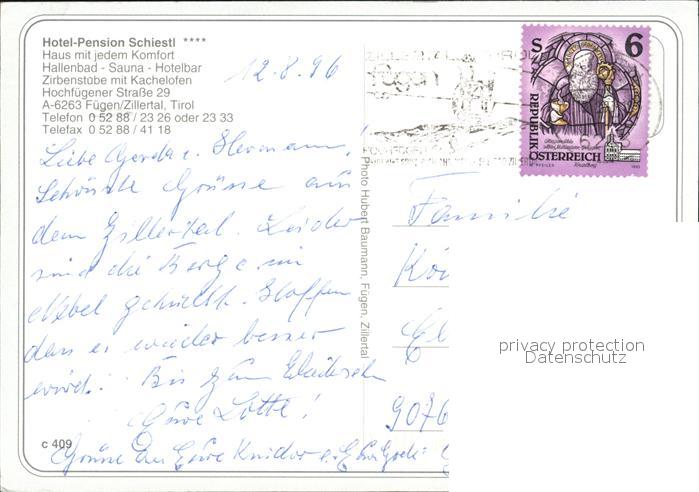 Hotel-Pension Schiestl ****
Haus mit jedem Komfort
Hallenbad - Sauna - Hotelbar
Zirbenstobe mit Kachelofen
Hochfügener Straße 29
A-6263 Fügen/Zillertal, Tirol
Telefon 0 52 88 / 23 26 oder 23 33
Telefax 0 52 88 / 41 18
12.8.96
Liebe Gerda u. Hermann!
Schönste Grüsse aus
dem Zillertal. Leider
sind die Berge im
Nebel gehüllt. Hoffen
dass es wieder besser
wird. Bis zum Wiedersehn
Eure Lotte!
Grüsse an Eure Kinder
c 409
Photo Hubert Baumann, Fügen, Zillertal
fügen
S 6
REPUBLIK
ÖSTERREICH
Familie
9076
privacy protection
Datenschutz